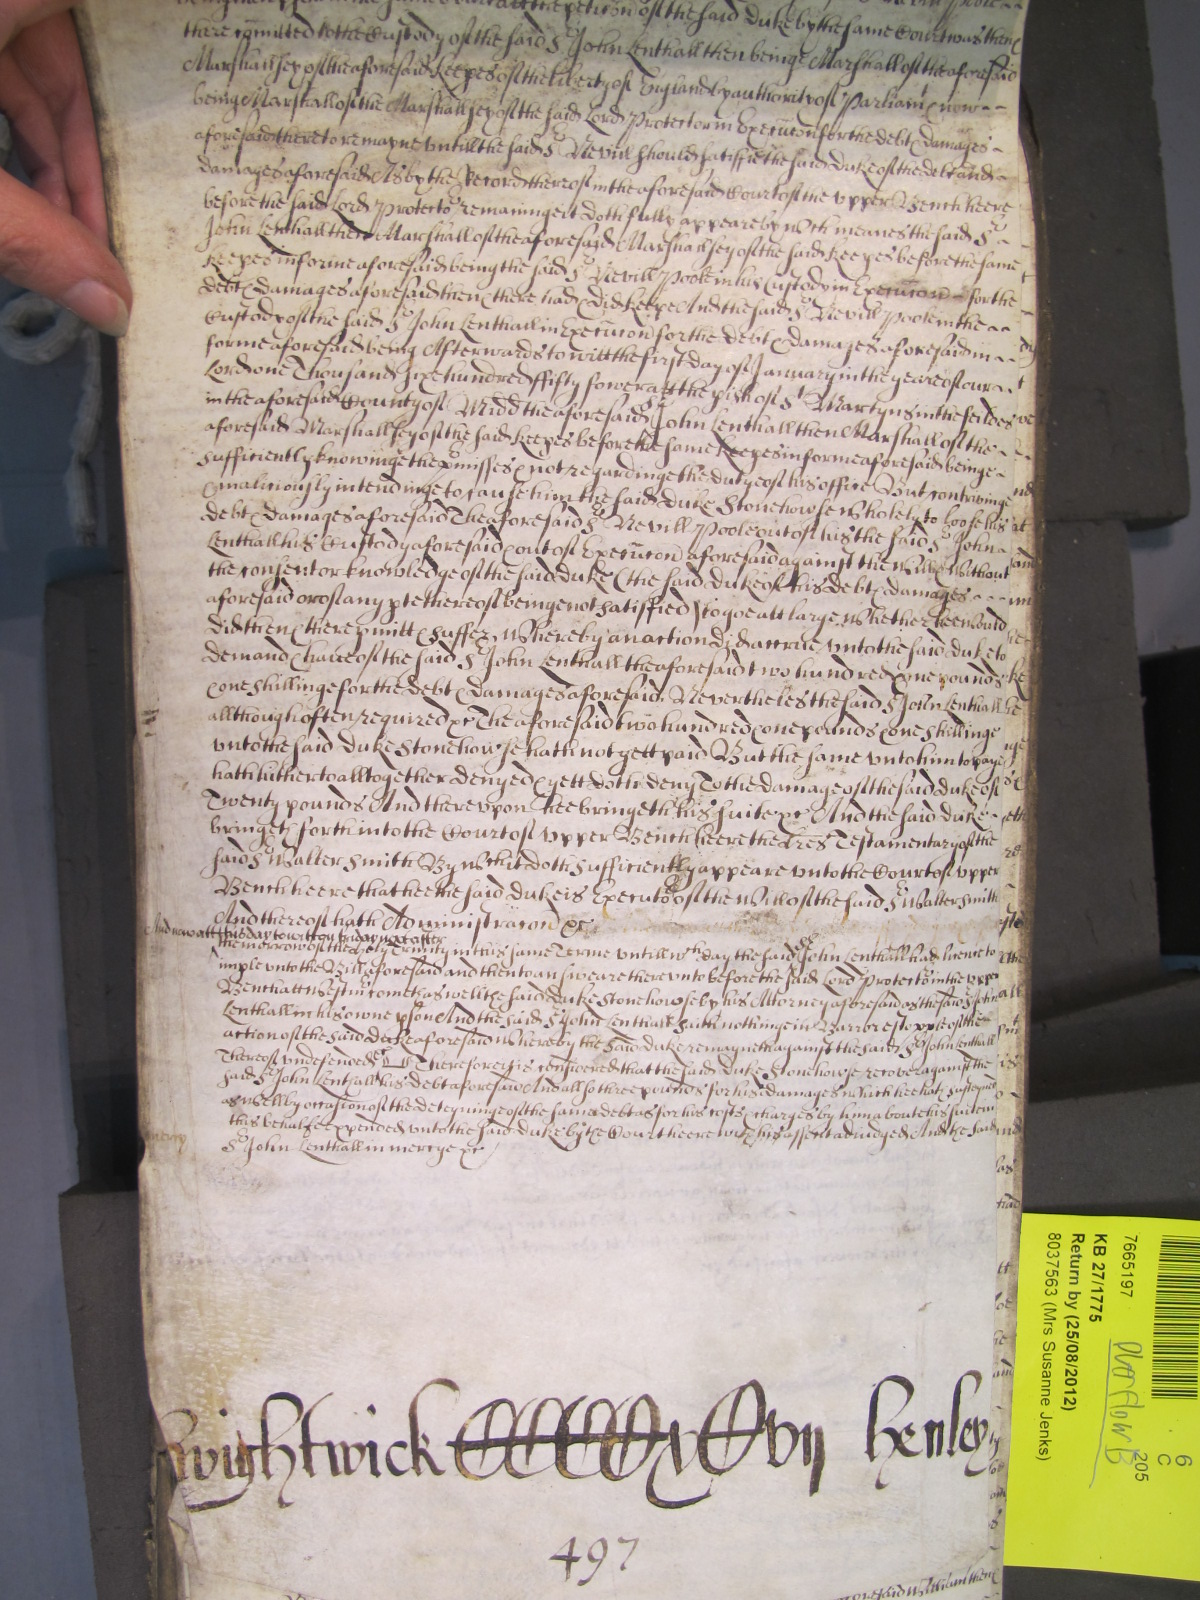 there comitted to the Custody of the said Sr John Lenthall then beinge Marshall of the aforesaid
Marshallsey of the aforesaid Keepers of the liberty of England by authority of Parliamt & now
beinge Marshall of the Marshallsey of the said Lord Protector in Execucon for the debt & damages
aforesaid there to remayne untill the said Sr Nevill should satisfie the said Duke of the debt and
damages aforesaid As by the Record thereof in the aforesaid Court of the upper Bench heere
before the said Lord Protector remaininge it doth fully appeare by wch meanes the said Sr
John Lenthall then Marshall of the aforesaid Marshallsey of the said Keepers before the same
Keepers in forme aforesaid being the said Sr Nevill Poole in his Custody in Execucon for the
debt & damages aforesaid then & there had & did Keepe And the said Sr Nevill Poole in the
Custody of the said Sr John Lenthall in Execucon for the debt & damages aforesaid in
forme aforesaid being Afterwards to witt the first day of January in the yeare of our
Lord one Thousand sixe hundred fifty fower att the pish of St Martyns in the feildes
in the aforesaid County of Midd the aforesaid Sr John Lenthall then Marshall of the
aforesaid Marshallsey of the said Keepers before the same Keepers in forme aforesaid beinge
sufficiently knowinge the pmisses & not regardinge the duty of his office But contrivinge
& maliciously intendinge to cause him the said Duke Stonehowse wholely to loose his
debt & damages aforesaid The aforesaid Sr Nevill Poole out of his the said Sr John
Lenthall his Custody aforesaid & out of Execucon aforesaid against the will & without
the consent or knowledge of the said duke (the said duke of his debt & damages
aforesaid or of any pte thereof beinge not satisfied) to goe att large whether hee would
did then & there pmitt & suffer Whereby an action did accrue unto the said duke to
demand & have of the said Sr John Lenthall the aforesaid two hundred & one pounds
& one shillinge for the debt & damages aforesaid Neverthelesse the said Sr John Lenthall
allthough often required &c The aforesaid two hundred & one pounds & one shillinge
unto the said duke Stonehowse hath not yett paid But the same unto him to pay
hath hitherto alltogether denyed & yett doth deny To the damage of the said duke of
Twenty pounds And thereupon hee bringeth his suite &c And the said duke
bringeth forth into the Court of upper Bench heere the Lres Testamentary of the
said Sr Walter Smith By which it doth sufficiently appeare unto the Court of upper
Bench heere that hee the said duke is Executor of the Will of the said Sr Walter Smith
And thereof hath Administracon &c
And now att this day to witt on friday next after
the morrow of the holy Trinity in this same Terme untill wch day the said Sr John Lenthall had licence to
imple unto the Bill aforesaid and then to answeare there unto before the said Lord Protector in the upper
Bench att Westmr comes as well the said duke Stonehowse by his Attorney aforesaid as the said Sr John
Lenthall in his owne pson And the said Sr John Lenthall saith nothinge in Barr or estopple of the
action of the said duke aforesaid Whereby the said duke remayneth against the said Sr John Lenthall
thereof undefended Therefore it is considered that the said duke Stonehowse recover against the
said Sr John Lenthall his debt aforesaid And allso three pounds for his damages which hee hath susteyned
as well by occasion of the deteyninge of the same debt as for his costs & charges by him about his suite in
this behalfe expended unto the said duke by the Court heere with his assent adiudged And the said
Sr John Lenthall in mercye &c
Wightwick CCCCxCvij henley
497
7665197
KB 27/1775
Return by (25/08/2012)
8037563 (Mrs Susanne Jenks)
205
6
C